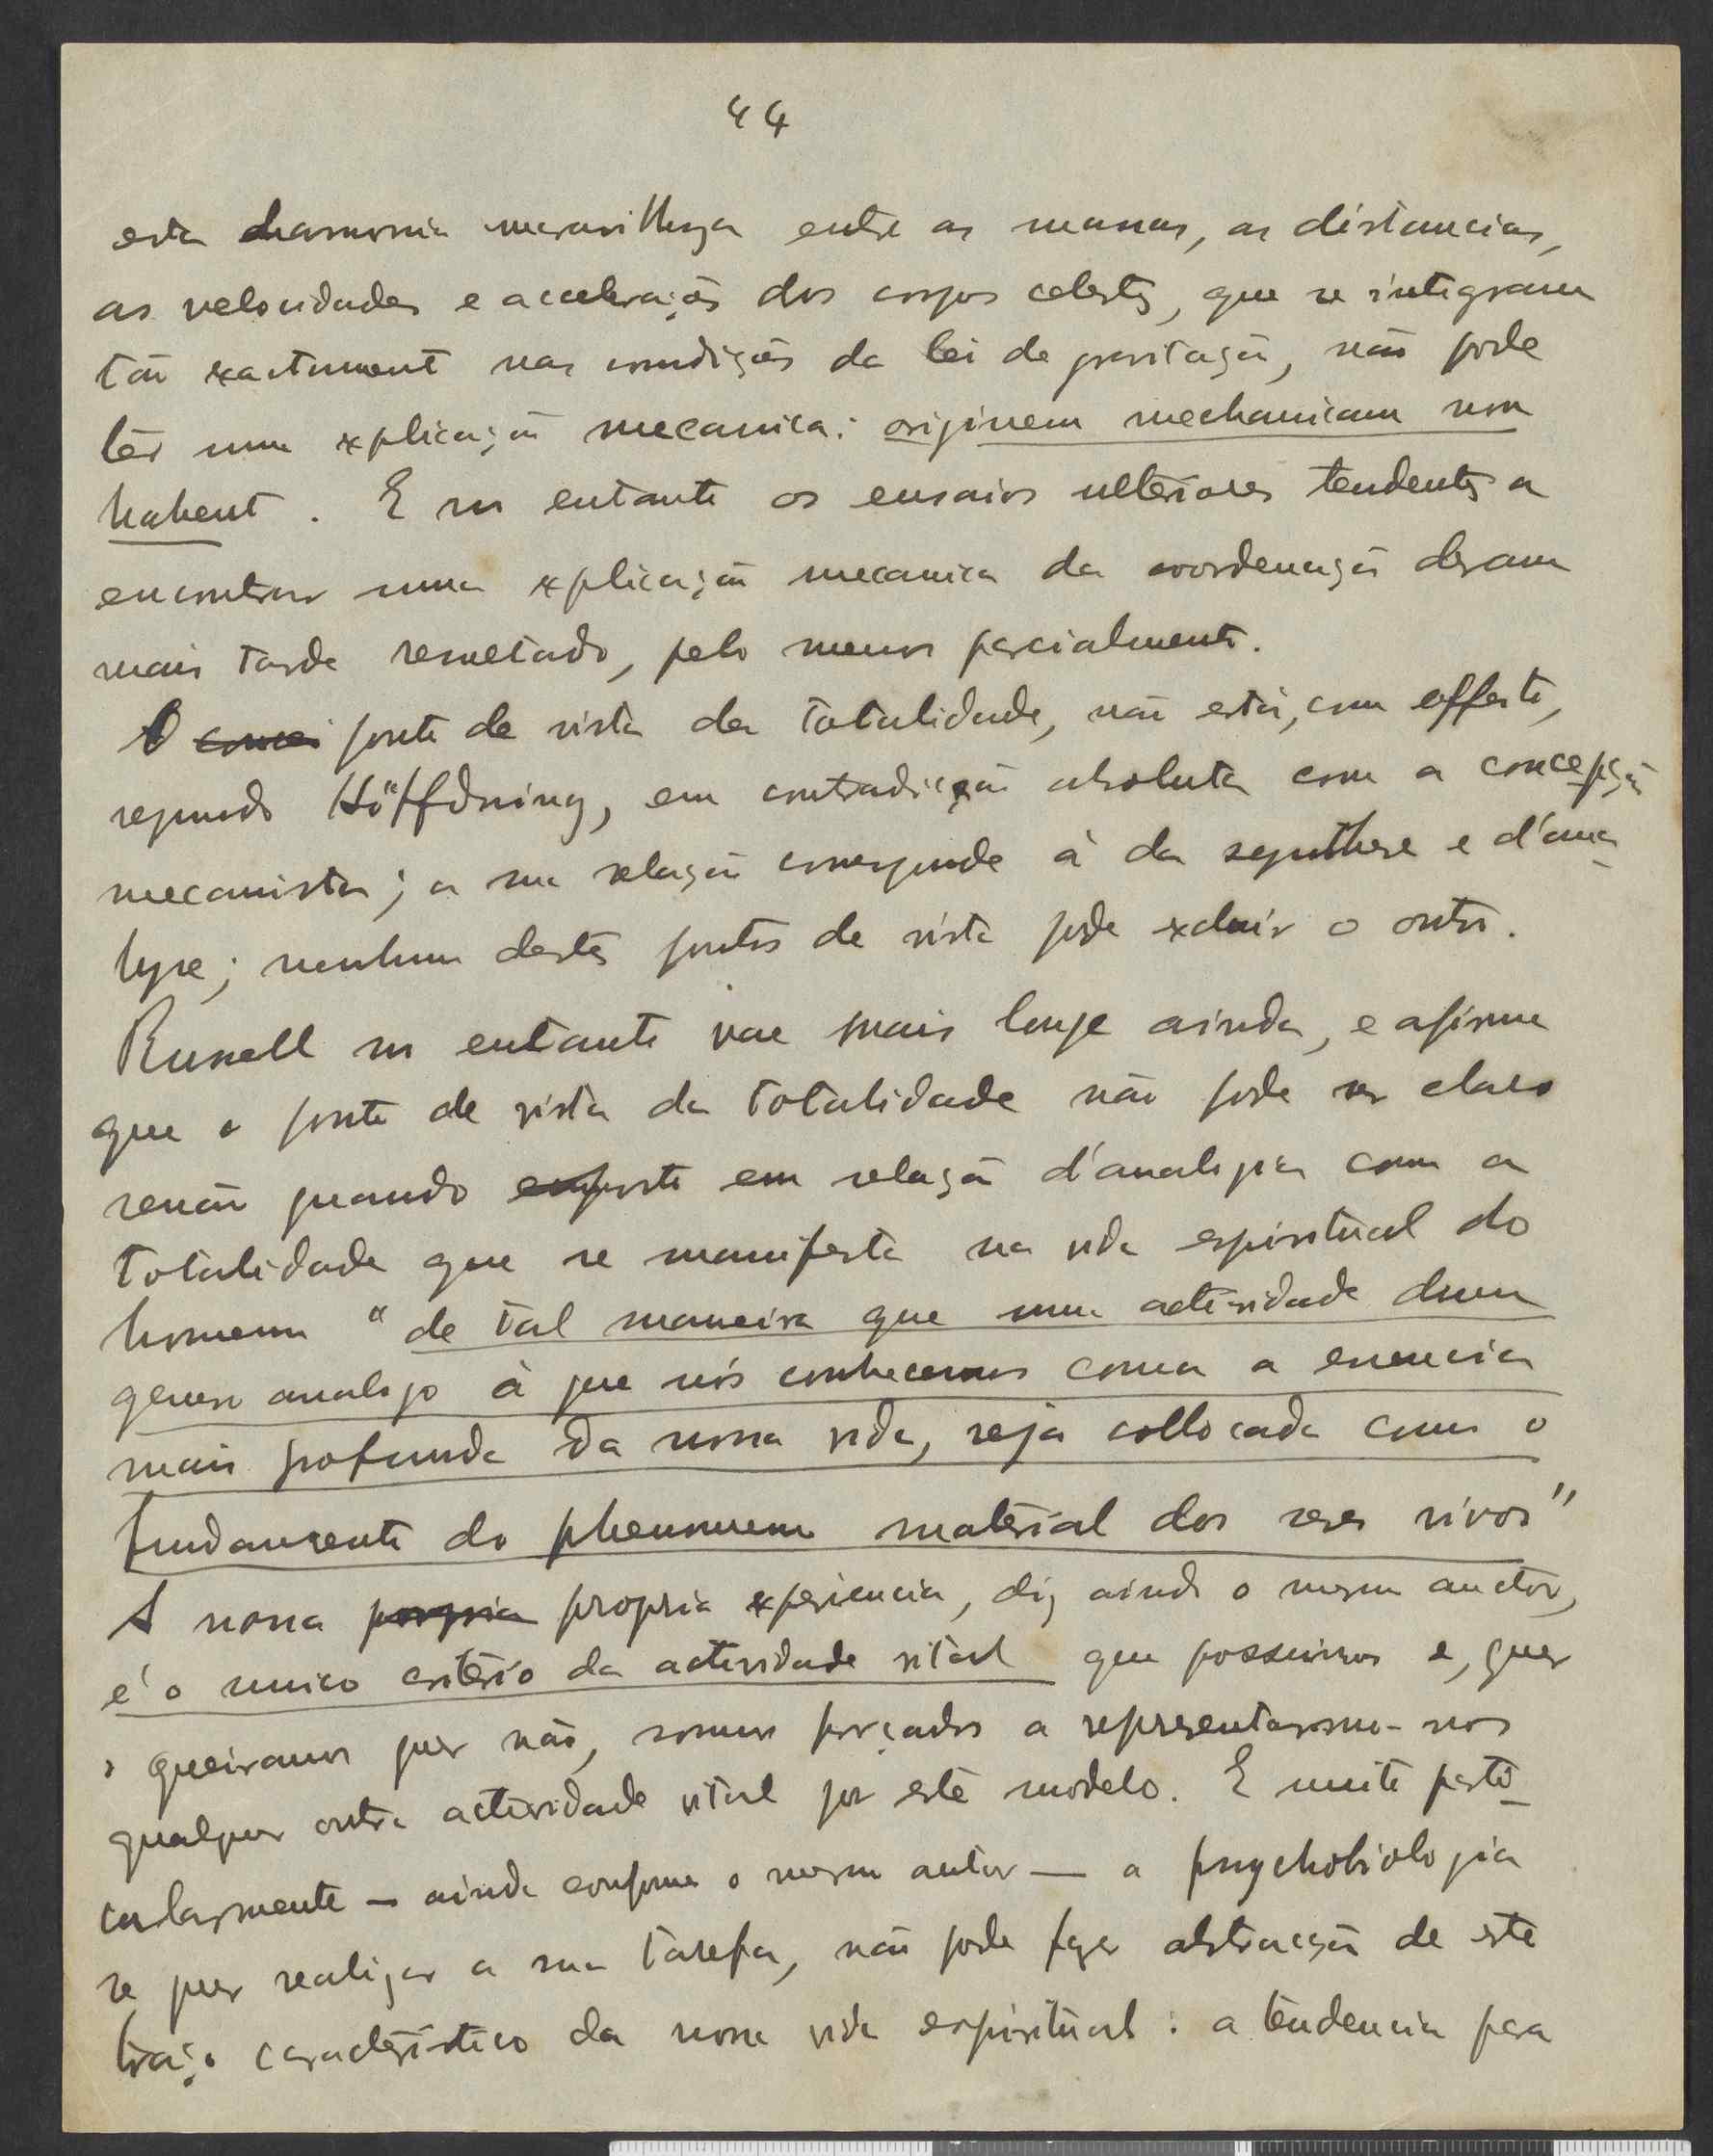 44
esta harmonia maravilhoza entre as massas, as distancias,
as velocidades e accelerações dos corpos celestes, que se integram
tão exactamente nas condições da lei de gravitação, não pode
ter uma explicação mecanica: originem mechanicam non
habent. E no entanto os ensaios ulteriores tendentes a
encontrar uma explicação mecanica da coordenação deram
mais tarde resultado, pelo menos parcialmente.
O concei ponto de vista da totalidade, não está, com effeito,
segundo Höffdning, em contradicção absoluta com a concepção
mecanista; a sua relação corresponde á da synthese e d'ana-
lyse; nenhum destes pontos de vista pode excluir o outro.
Russell no entanto vae mais longe ainda, e afirma
que o ponto de vista da totalidade não pode ser claro
senão quando exposto em relação d'analogia com a
totalidade que se manifesta na vida espiritual do
homem "de tal maneira que uma actividade dum
genero analogo á que nós conhecemos como a essencia
mais profunda da nossa vida, seja collocada como o
fundamento do phenomeno material dos seres vivos"
A nossa propria propria experiencia, diz ainda o mesmo auctor,
é o unico critério da actividade vital que possuimos e, quer
o queiramos quer não, somos forçados a representarmo-nos
qualquer outra actividade vital por este modelo. E muito parti-
cularmente — ainda conforme o mesmo autor — a psychobiologia
se quer realizar a sua tarefa, não pode fazer abstracção de este
traço caracteristico da nossa vida espiritual: a tendencia para